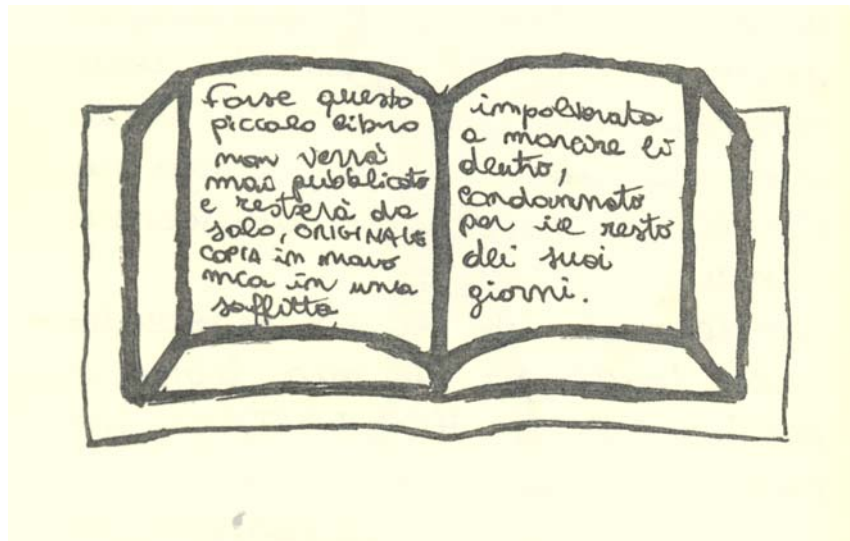 Forse questo
piccolo libro
non verrà
mai pubblicato
e resterà da
solo, ORIGINALE
COPIA in mano
in una
soffitta
impolverata
a marcire lì
dentro,
condannato
per il resto
dei suoi
giorni.